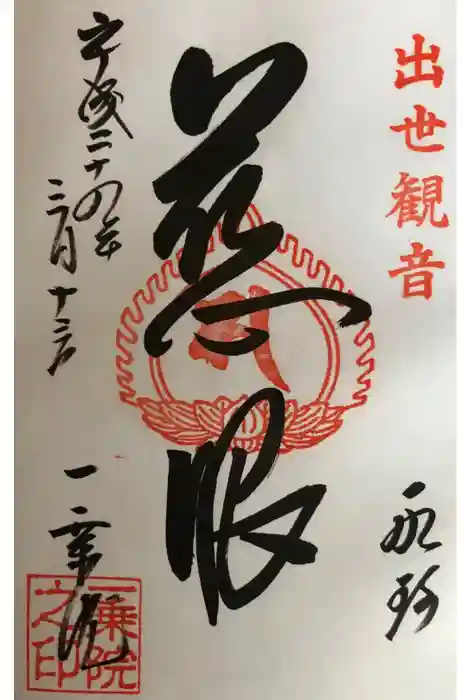 出世観音
慈眼
平成二十四年
三月十三日
一乗院
一乗院
之印